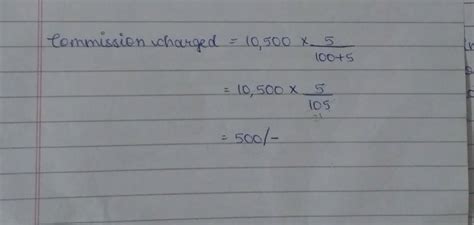 Commission charged = 10,500 × 5/100+5
= 10,500 × 5/105
= 500/-